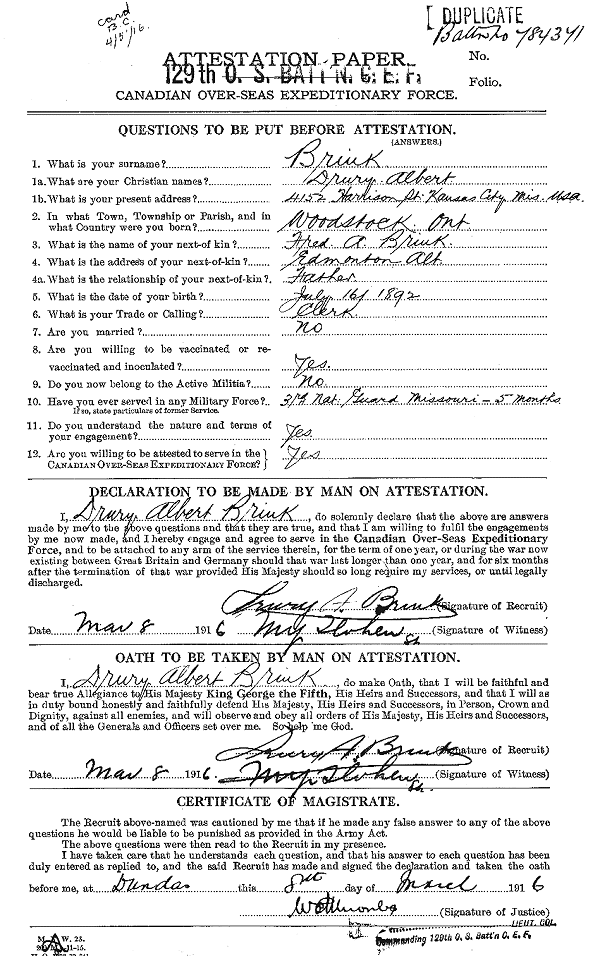 card
B.C.
4/5/16.
[ DUPLICATE
Battn No 784341
ATTESTATION PAPER.
No.
129th O. S. BATT'N. C. E. F.
Folio.
CANADIAN OVER-SEAS EXPEDITIONARY FORCE.
QUESTIONS TO BE PUT BEFORE ATTESTATION.
(ANSWERS.)
1. What is your surname? Brink
1a. What are your Christian names? Drury Albert
1b. What is your present address? 4152 Harrison St. Kansas City Mis. USA.
2. In what Town, Township or Parish, and in
what Country were you born? Woodstock Ont
3. What is the name of your next-of kin? Fred A. Brink.
4. What is the address of your next-of-kin? Edmonton Alt
4a. What is the relationship of your next-of-kin? Father
5. What is the date of your birth? July 16/ 1892
6. What is your Trade or Calling? Clerk
7. Are you married? No
8. Are you willing to be vaccinated or re-
vaccinated and inoculated? Yes.
9. Do you now belong to the Active Militia? No
10. Have you ever served in any Military Force? 3rd Nat. Guard Missouri - 5 months
If so, state particulars of former Service.
11. Do you understand the nature and terms of
your engagement? Yes
12. Are you willing to be attested to serve in the
CANADIAN OVER-SEAS EXPEDITIONARY FORCE? Yes
DECLARATION TO BE MADE BY MAN ON ATTESTATION.
I, Drury Albert Brink, do solemnly declare that the above are answers
made by me to the above questions and that they are true, and that I am willing to fulfil the engagements
by me now made, and I hereby engage and agree to serve in the Canadian Over-Seas Expeditionary
Force, and to be attached to any arm of the service therein, for the term of one year, or during the war now
existing between Great Britain and Germany should that war last longer than one year, and for six months
after the termination of that war provided His Majesty should so long require my services, or until legally
discharged.
Drury A. Brink (Signature of Recruit)
Date Mar 8 1916 (Signature of Witness)
OATH TO BE TAKEN BY MAN ON ATTESTATION.
I, Drury Albert Brink, do make Oath, that I will be faithful and
bear true Allegiance to His Majesty King George the Fifth, His Heirs and Successors, and that I will as
in duty bound honestly and faithfully defend His Majesty, His Heirs and Successors, in Person, Crown and
Dignity, against all enemies, and will observe and obey all orders of His Majesty, His Heirs and Successors,
and of all the Generals and Officers set over me. So help me God.
Drury A. Brink (Signature of Recruit)
Date Mar 8 1916 (Signature of Witness)
CERTIFICATE OF MAGISTRATE.
The Recruit above-named was cautioned by me that if he made any false answer to any of the above
questions he would be liable to be punished as provided in the Army Act.
The above questions were then read to the Recruit in my presence.
I have taken care that he understands each question, and that his answer to each question has been
duly entered as replied to, and the said Recruit has made and signed the declaration and taken the oath
before me, at Dundas this 8th day of March 1916
(Signature of Justice)
LIEUT. COL.
Commanding 129th O. S. Batt'n C. E. F.
M. & W. 23.
11-15.